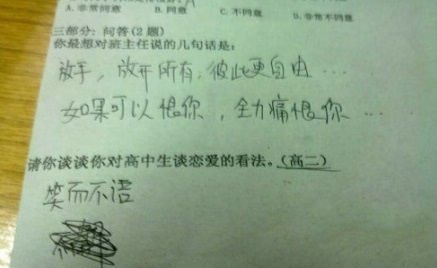 A. 非常同意 B. 同意 C. 不同意 B. 非常不同意
三部分: 问答(2题)
你最想对班主任说的几句话是:
放手，放开所有，彼此更自由…
如果可以恨你，全力痛恨你…
请你谈谈你对高中生谈恋爱的看法。(高二)
笑而不语